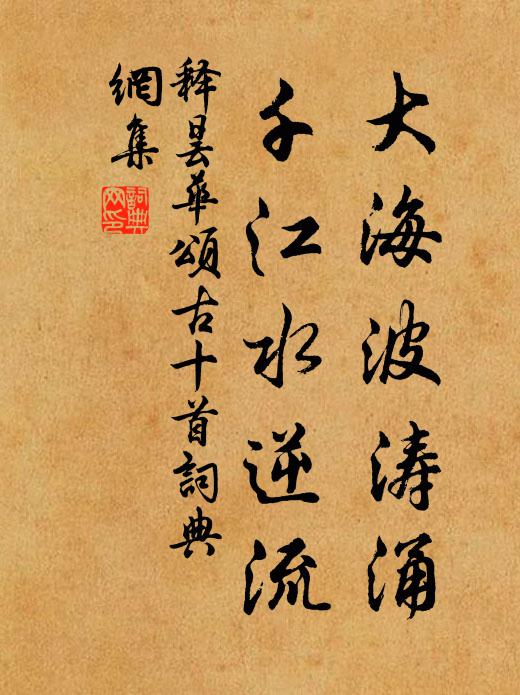 大海波涛涌
千江水逆流
释昙华颂古十首詞典
網集
詞典
网印